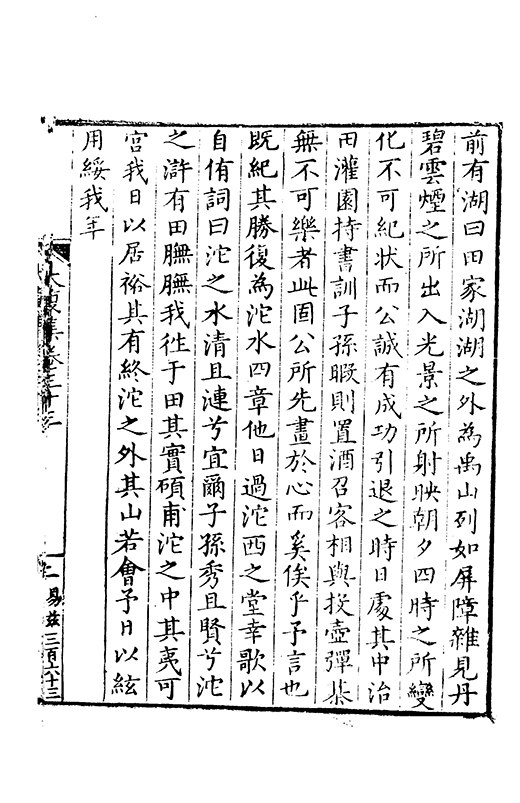 前有湖曰田家湖湖之外為禹山列如屏障雜見丹
碧雲煙之所出入光景之所射映朝夕四時之所變
化不可紀狀而公誠有成功引退之時日處其中治
田灌園持書訓子孫暇則置酒召客相與投壺彈棊
無不可樂者此固公所先畫於心而奚俟乎予言也
既紀其勝復為沱水四章他日過沱西之堂幸歌以
自侑詞曰沱之水清且漣兮宜爾子孫秀且賢兮沱
之滸有田膴膴我徃于田其實碩甫沱之中其夷可
宮我日以居裕其有終沱之外其山若會予日以絃
用綏我年
太復集卷三十
一
易茲三百六十三